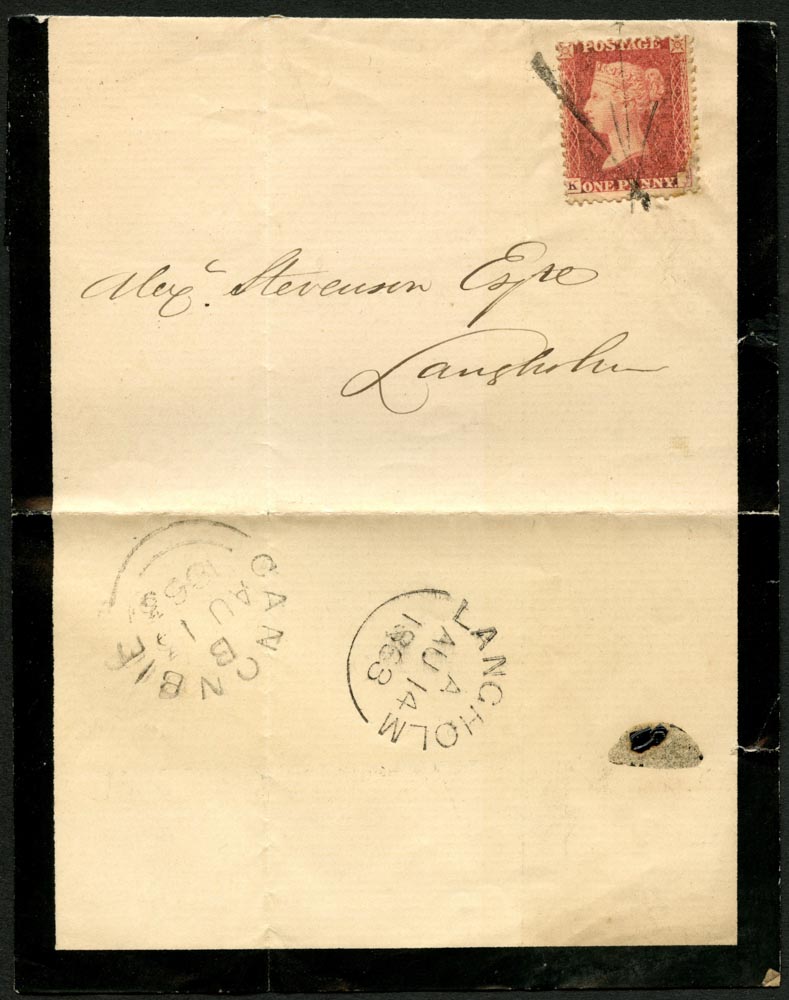 POSTAGE
K ONE PENNY
Alexr. Stevenson Esqre
Langholm
CANONBIE
B
AU 13
1863
LANGHOLM
A
AU 14
1863